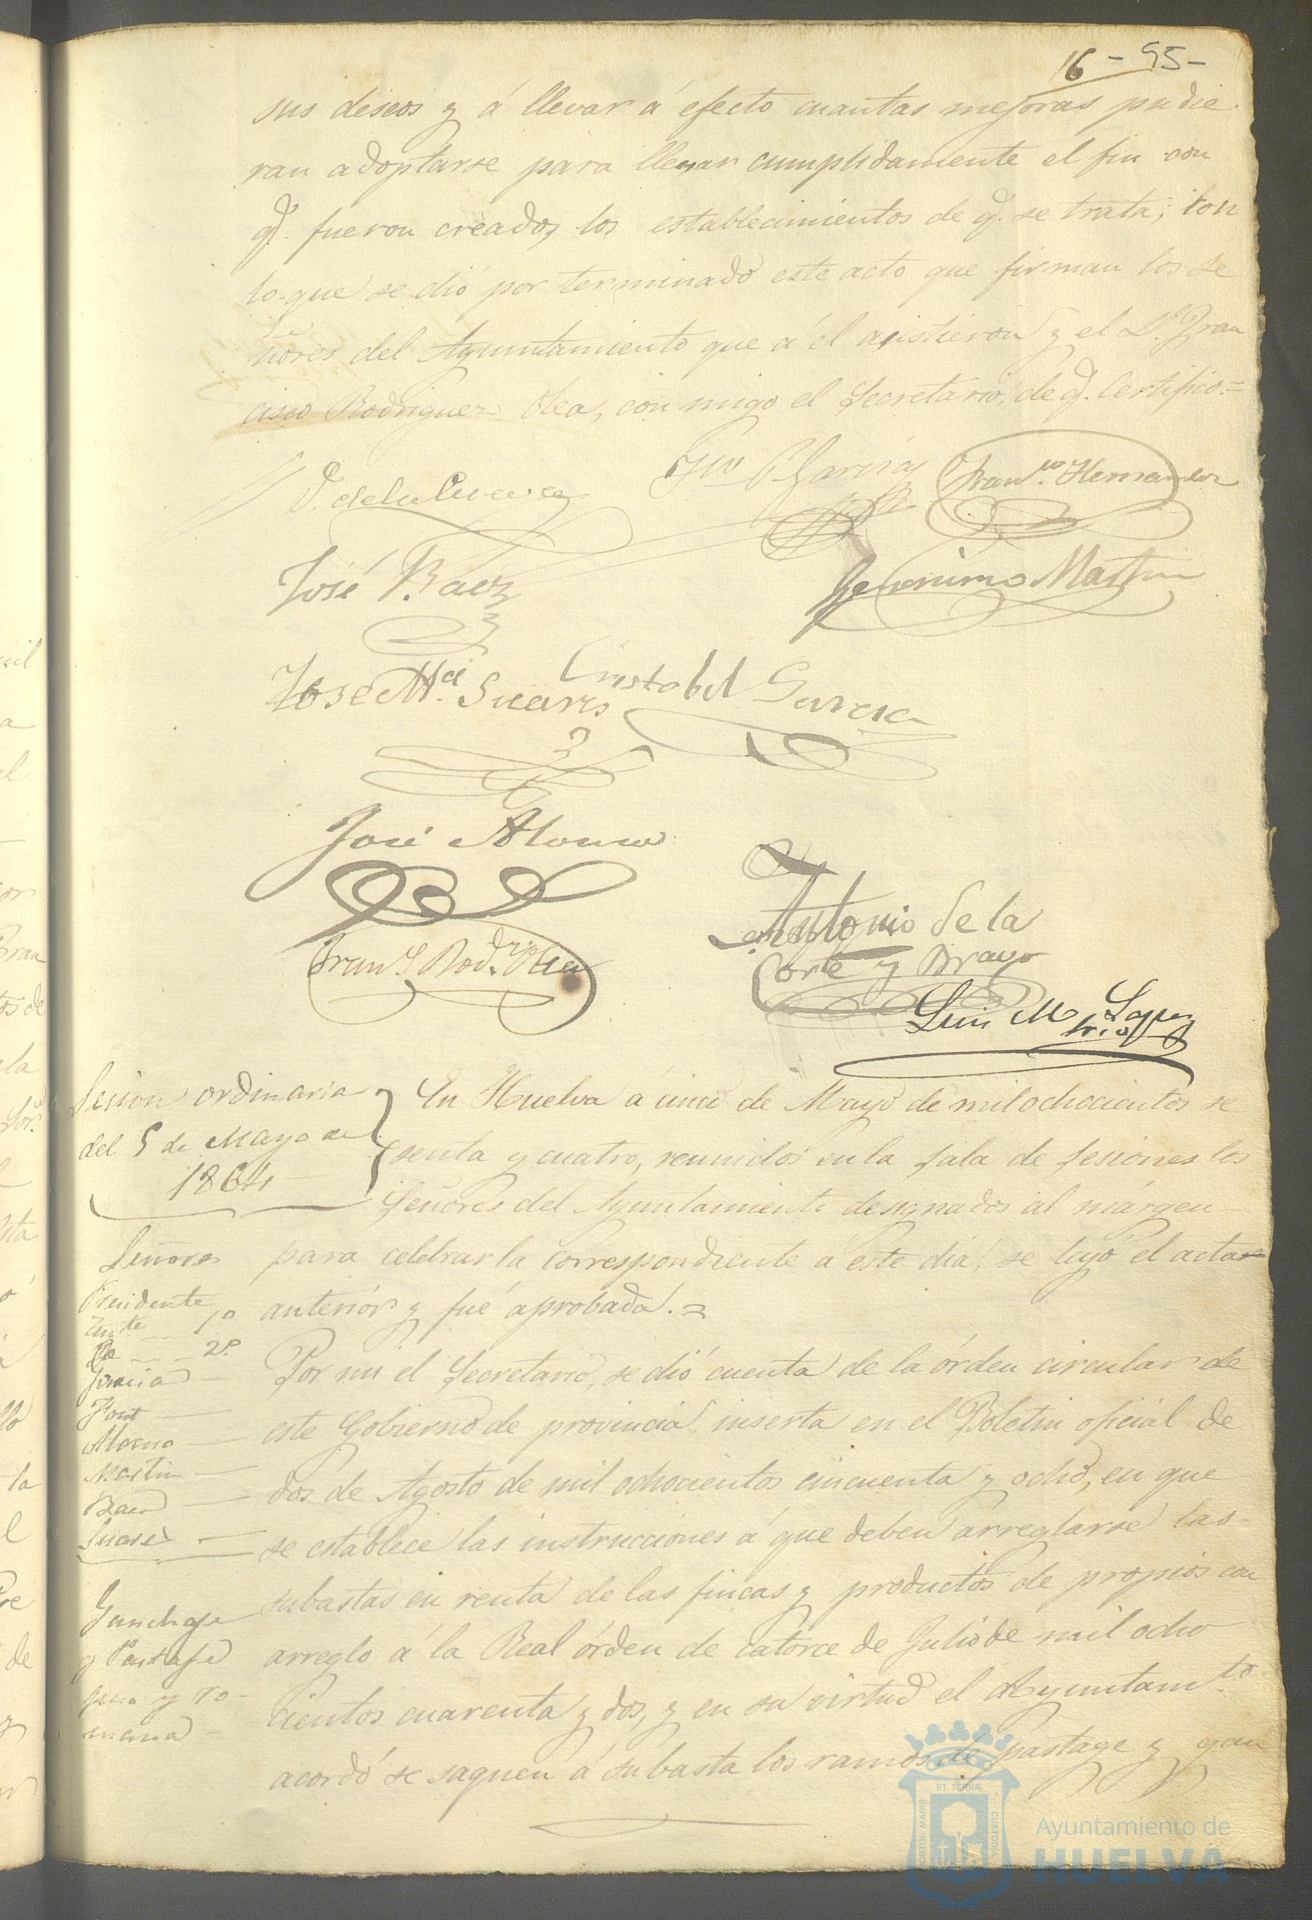 16 - 95 -
sus deseos y á llevar á efecto cuantas mejoras pudie
ran adoptarse para llenar cumplidamente el fin con
q. fueron creados los establecimientos de q. se trata; con
lo que se dió por terminado este acto que firman los Se
ñores del Ayuntamiento que á él asistieron y el Dr. Fran
cisco Rodriguez Olea, con migo el Secretario, de q. Certifico.=
P. de la Cueva
Garcia
Fran.co Hernandez
José Baez
Geronimo Martin
Jose Ma. Suares
Cristobal Garcia
José Alonso
Antonio de la
Corte y Brayo
Fran.co Rod.z Olea
Luis M. Lopez
Srio
Sesion ordinaria
del 5 de Mayo de
1864
En Huelva á cinco de Mayo de mil ochocientos se
senta y cuatro, reunidos en la Sala de Sesiones los
Señores del Ayuntamiento designados al márgen
para celebrar la correspondiente á este dia, se leyó el acta
anterior y fué aprobada.=
Señores
Presidente
Tnte 1º
2º
Garcia
Font
Alonso
Martin
Baez
Suarez
Por mi el Secretario, se dió cuenta de la órden circular de
este Gobierno de provincia, inserta en el Boletin oficial de
dos de Agosto de mil ochocientos cincuenta y ocho, en que
se establece las instrucciones á que deben arreglarse las
subastas en renta de las fincas y productos de propios con
arreglo á la Real órden de catorce de Julio de mil ocho
cientos cuarenta y dos, y en su virtud el Ayuntam.to
acordó se saquen á subasta los ramos de pastage y gan
y Pastage
peso y ro-
mana
PORTUS MARIS
ET TERRAE
CUSTODIA
Ayuntamiento de
HUELVA